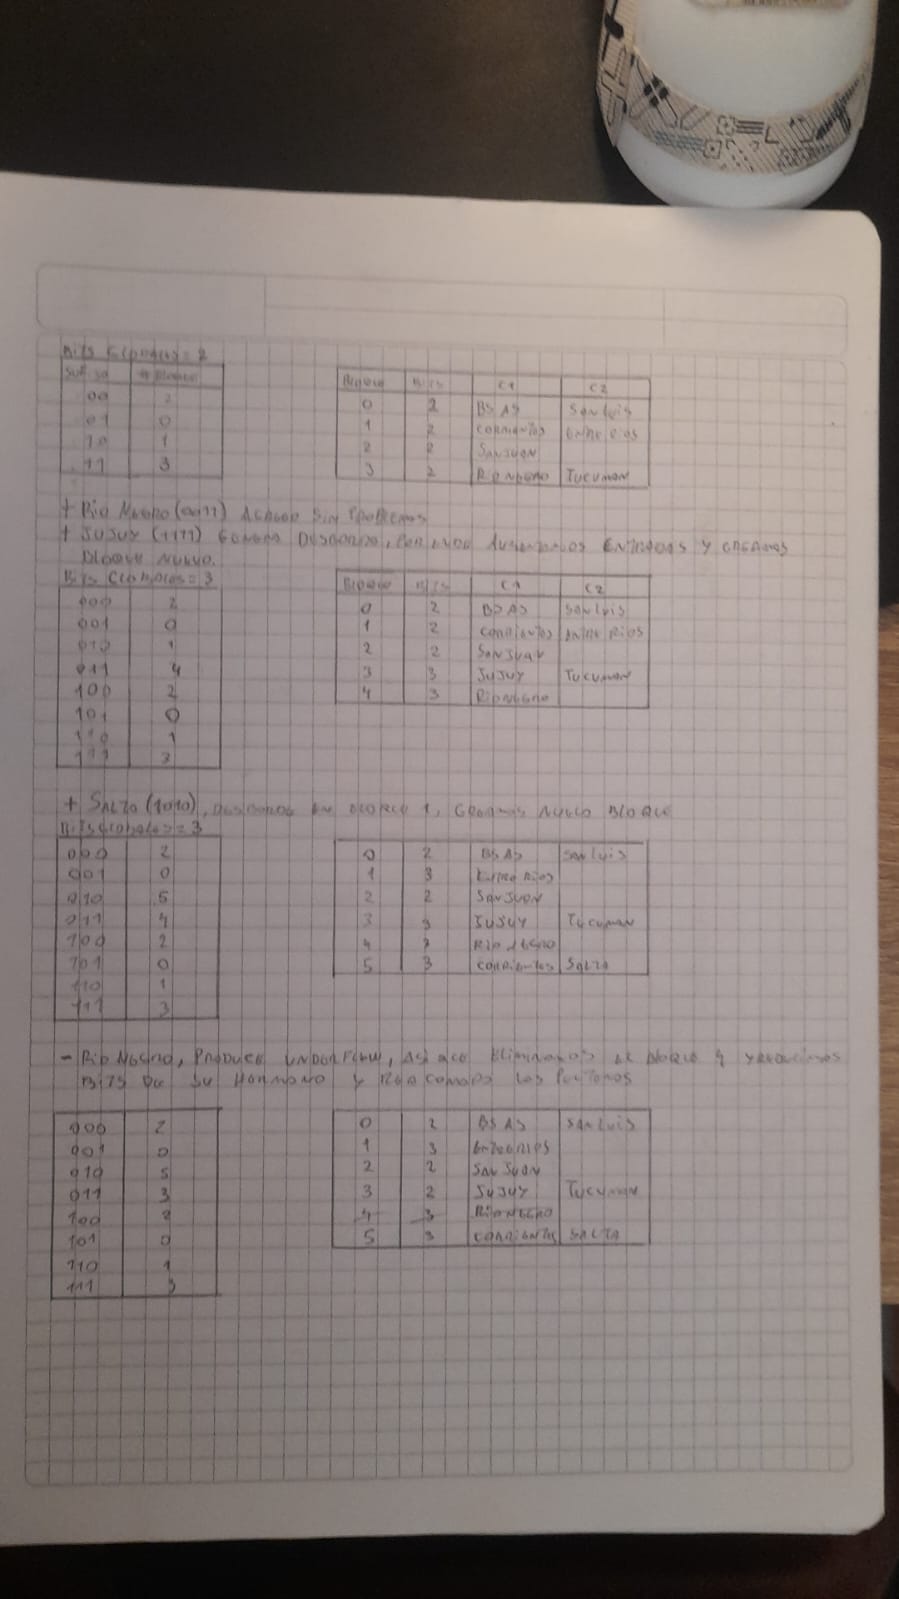 Bits Globales = 2
Sufijo # Bloque
00 2
01 0
10 1
11 3
Bloque Bits C1 C2
0 2 BS AS San Luis
1 2 Corrientes Entre Rios
2 2 San Juan
3 2 Rio Negro Tucuman
+ Rio Negro (0011) Sin Problemas
+ Jujuy (1111) Genera Desborde, Por Aumentamos Entradas y Creamos
Bloque Nuevo.
Bits Globales = 3
000 2
001 0
010 1
011 4
100 2
101 0
110 1
111 3
Bloque Bits C1 C2
0 2 BS AS San Luis
1 2 Corrientes Entre Rios
2 2 San Juan
3 3 Jujuy Tucuman
4 3 Rio Negro
+ Salta (1010), Desborde en Bloque 1, Creamos Nuevo Bloque
Bits Globales = 3
000 2
001 0
010 5
011 4
100 2
101 0
110 1
111 3
0 2 BS AS San Luis
1 3 Entre Rios
2 2 San Juan
3 3 Jujuy Tucuman
4 3 Rio Negro
5 3 Corrientes Salta
- Rio Negro, Produce Underflow, Asi que Eliminamos el Bloque 4 y reducimos
Bits de su Hermano y los Punteros
000 2
001 0
010 5
011 3
100 2
101 0
110 1
111 3
0 2 BS AS San Luis
1 3 Entre Rios
2 2 San Juan
3 2 Jujuy Tucuman
4 3 Rio Negro
5 3 Corrientes Salta